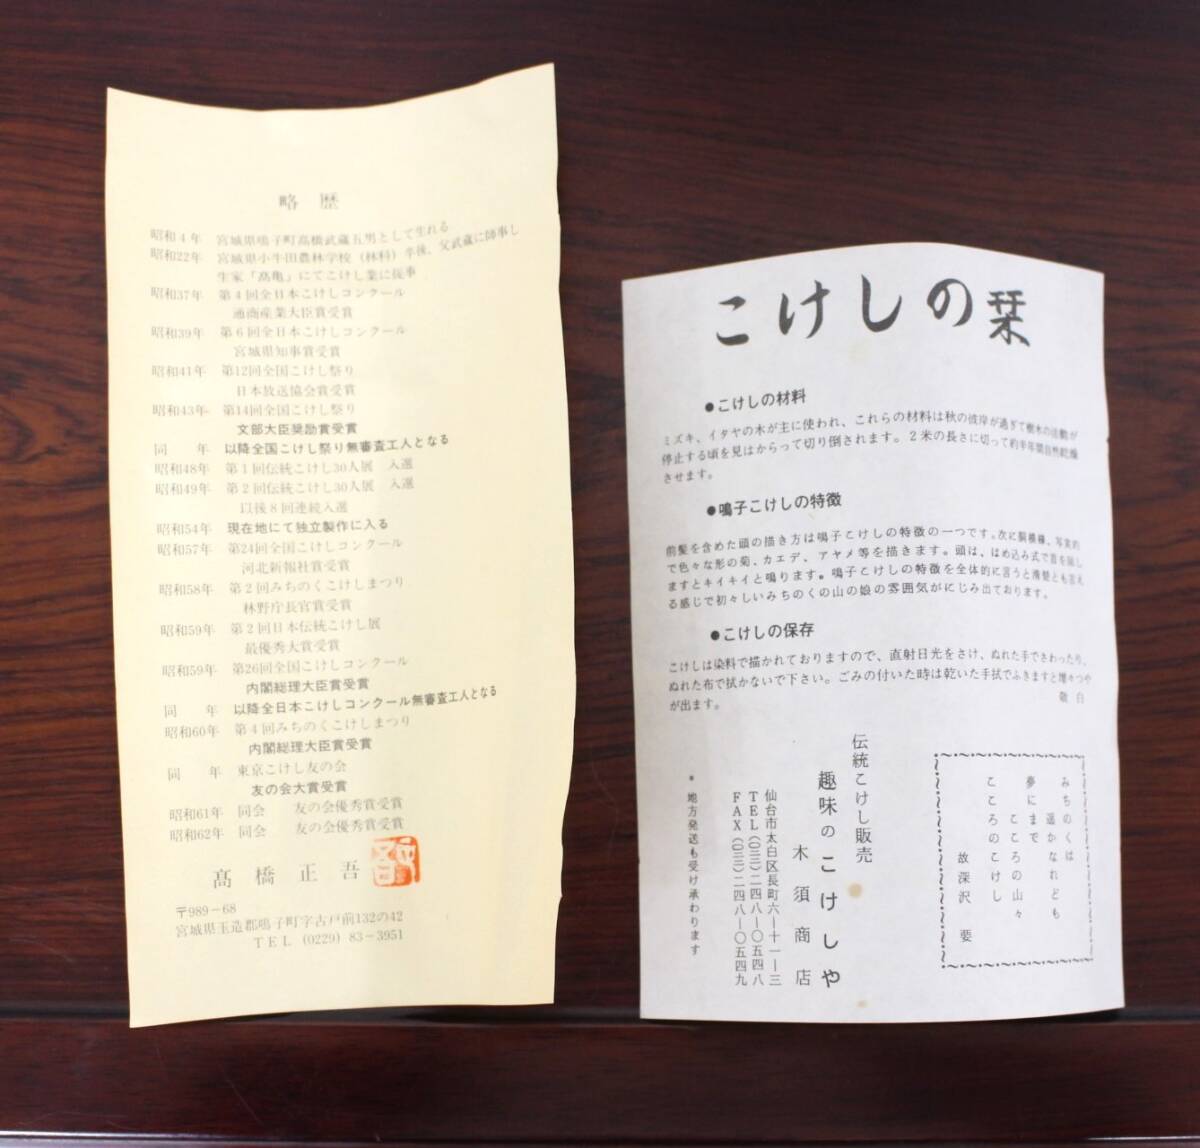 略歴
昭和4年 宮城県鳴子町高橋武蔵五男として生れる
昭和22年 宮城県小牛田農林学校（林科）卒後、父武蔵に師事し
生家「髙亀」にてこけし業に従事
昭和37年 第4回全日本こけしコンクール
通商産業大臣賞受賞
昭和39年 第6回全日本こけしコンクール
宮城県知事賞受賞
昭和41年 第12回全国こけし祭り
日本放送協会賞受賞
昭和43年 第14回全国こけし祭り
文部大臣奨励賞受賞
同年 以降全国こけし祭り無審査工人となる
昭和48年 第1回伝統こけし30人展 入選
昭和49年 第2回伝統こけし30人展 入選
以後8回連続入選
昭和54年 現在地にて独立製作に入る
昭和57年 第24回全国こけしコンクール
河北新報社賞受賞
昭和58年 第2回みちのくこけしまつり
林野庁長官賞受賞
昭和59年 第2回日本伝統こけし展
最優秀大賞受賞
昭和59年 第26回全国こけしコンクール
内閣総理大臣賞受賞
同年 以降全日本こけしコンクール無審査工人となる
昭和60年 第4回みちのくこけしまつり
内閣総理大臣賞受賞
同年 東京こけし友の会
友の会大賞受賞
昭和61年 同会 友の会優秀賞受賞
昭和62年 同会 友の会優秀賞受賞
髙橋正吾
〒989－68
宮城県玉造郡鳴子町字古戸前132の42
TEL (0229) 83－3951
こけしの栞
●こけしの材料
ミズキ、イタヤの木が主に使われ、これらの材料は秋の彼岸が過ぎて樹木の活動が
停止する頃を見はからって切り倒されます。2米の長さに切って約半年間自然乾燥
させます。
●鳴子こけしの特徴
前髪を含めた頭の描き方は鳴子こけしの特徴の一つです。次に胴模様、写実的
で色々な形の菊、カエデ、アヤメ等を描きます。頭は、はめ込み式で首を回し
ますとキイキイと鳴ります。鳴子こけしの特徴を全体的に言うと清楚とも言え
る感じで初々しいみちのくの山の娘の雰囲気がにじみ出ております。
●こけしの保存
こけしは染料で描かれておりますので、直射日光をさけ、ぬれた手でさわったり、
ぬれた布で拭かないで下さい。ごみの付いた時は乾いた手拭でふきますと増々つや
が出ます。
敬白
みちのくは
遥かなれども
夢にまで
こころの山々
こころのこけし
故深沢 要
伝統こけし販売
趣味のこけしや
木須商店
仙台市太白区長町六―十一―三
TEL(〇二二)二四八―〇五四八
FAX(〇二二)二四八―〇五四九
・地方発送も受け承わります